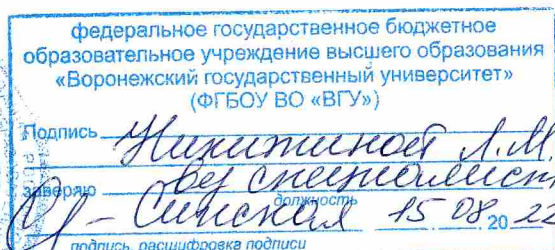 федеральное государственное бюджетное
образовательное учреждение высшего образования
«Воронежский государственный университет»
(ФГБОУ ВО «ВГУ»)
Подпись Никитиной Л.М.
заверяю вед специалист
должность
15 08 20 22
подпись, расшифровка подписи